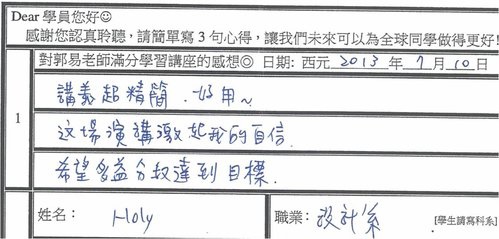 Dear 學員您好☺
感謝您認真聆聽，請簡單寫3句心得，讓我們未來可以為全球同學做得更好!
對郭易老師滿分學習講座的感想◎ 日期: 西元 2013 年 7 月 10 日
1
講義超精簡. 好用~
這場演講激起我的自信.
希望多益分数達到目標.
姓名: Holy 職業: 設計系 [學生請寫科系]